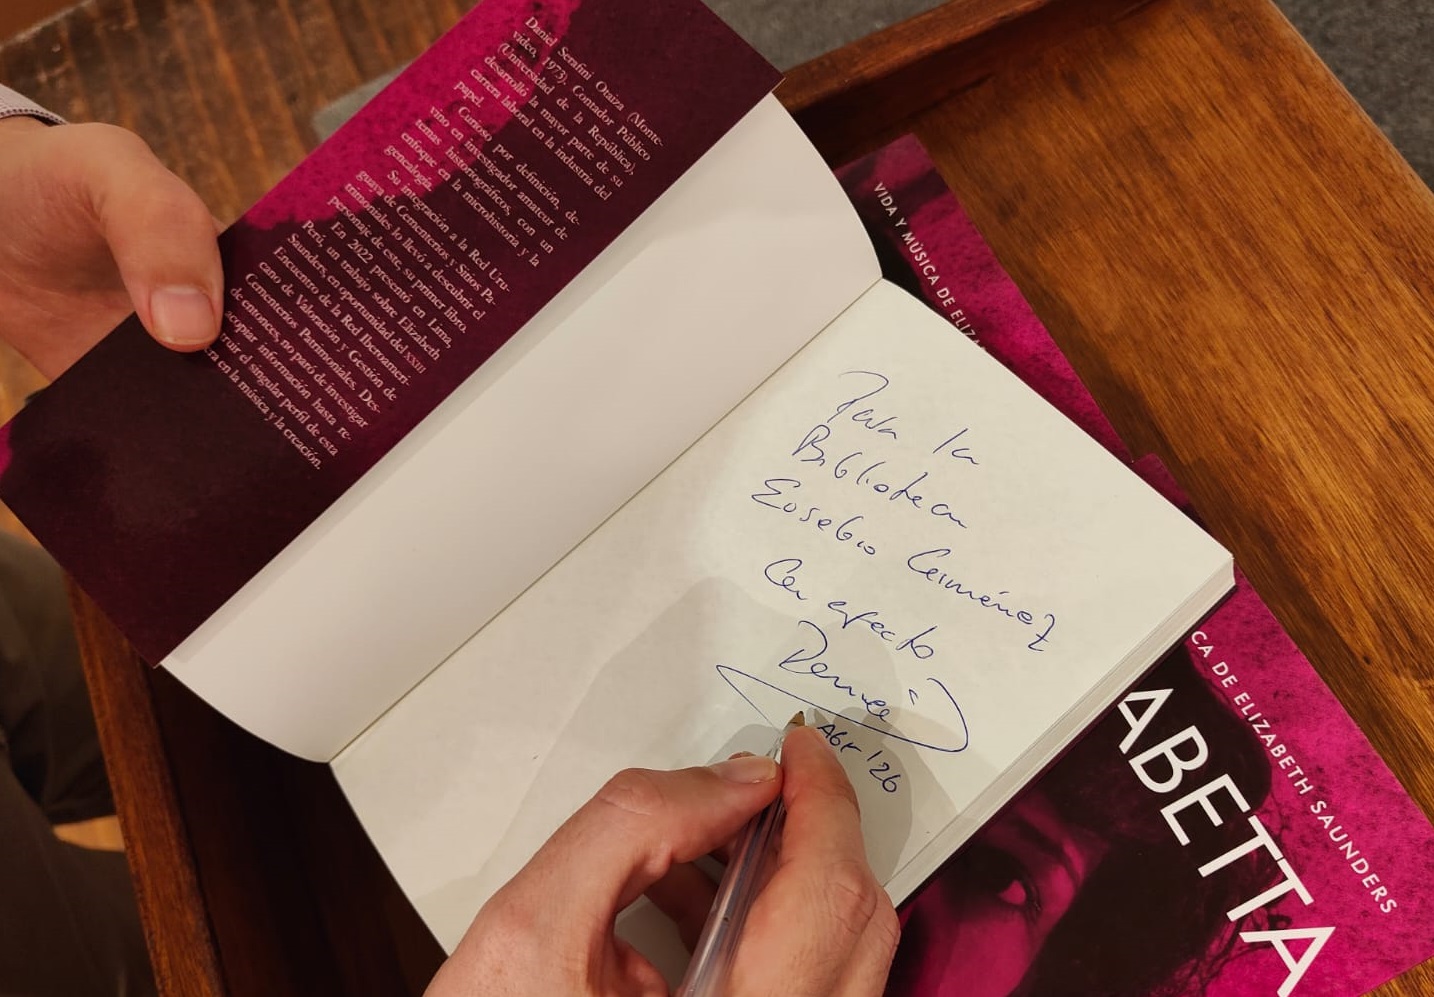 Daniel Serafini Otaiza (Monte-
video, 1973). Contador Público
(Universidad de la República),
desarrolló la mayor parte de su
carrera laboral en la industria del
papel.
Curioso por definición, de-
vino en investigador amateur de
temas historiográficos, con un
enfoque en la microhistoria y la
genealogía.
Su integración a la Red Uru-
guaya de Cementerios y Sitios Pa-
trimoniales lo llevó a descubrir el
personaje de este, su primer libro.
En 2022 presentó en Lima,
Perú, un trabajo sobre Elizabeth
Saunders, en oportunidad del XXIII
Encuentro de la Red Iberoameri-
cano de Valoración y Gestión de
Cementerios Patrimoniales. Des-
de entonces, no paró de investigar
copiar información hasta re-
ruir el singular perfil de esta
ra en la música y la creación.
Para la
Biblioteca
Eusebio Giménez
Con afecto
Daniel
Abr '26
VIDA Y MÚSICA DE ELIZA
CA DE ELIZABETH SAUNDERS
ABETTA